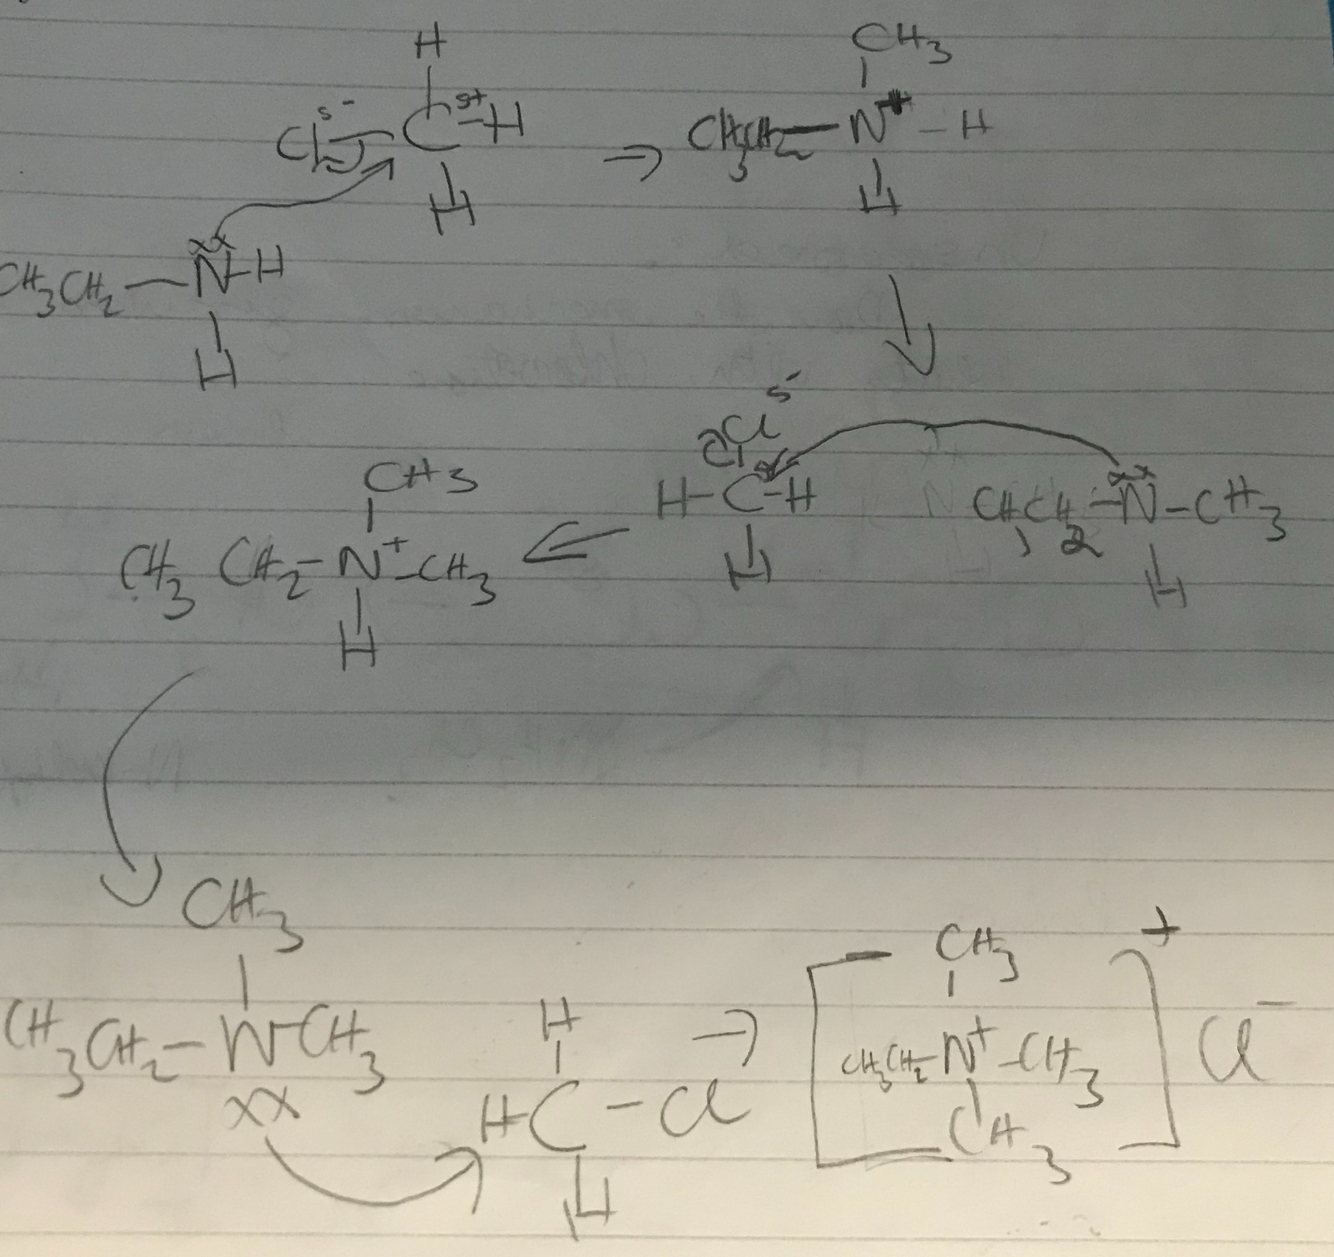 H
Cl δ- — C δ+ – H
H
CH3CH2 — N – H
H
→
CH3
CH3CH2 — N+ – H
H
Cl δ-
H – C – H
H
CH3CH2 – N – CH3
H
CH3
CH3 CH2 – N+ – CH3
H
CH3
CH3CH2 – N – CH3
xx
H
H – C – Cl
H
→
CH3
[CH3CH2 – N+ – CH3]+ Cl-
CH3